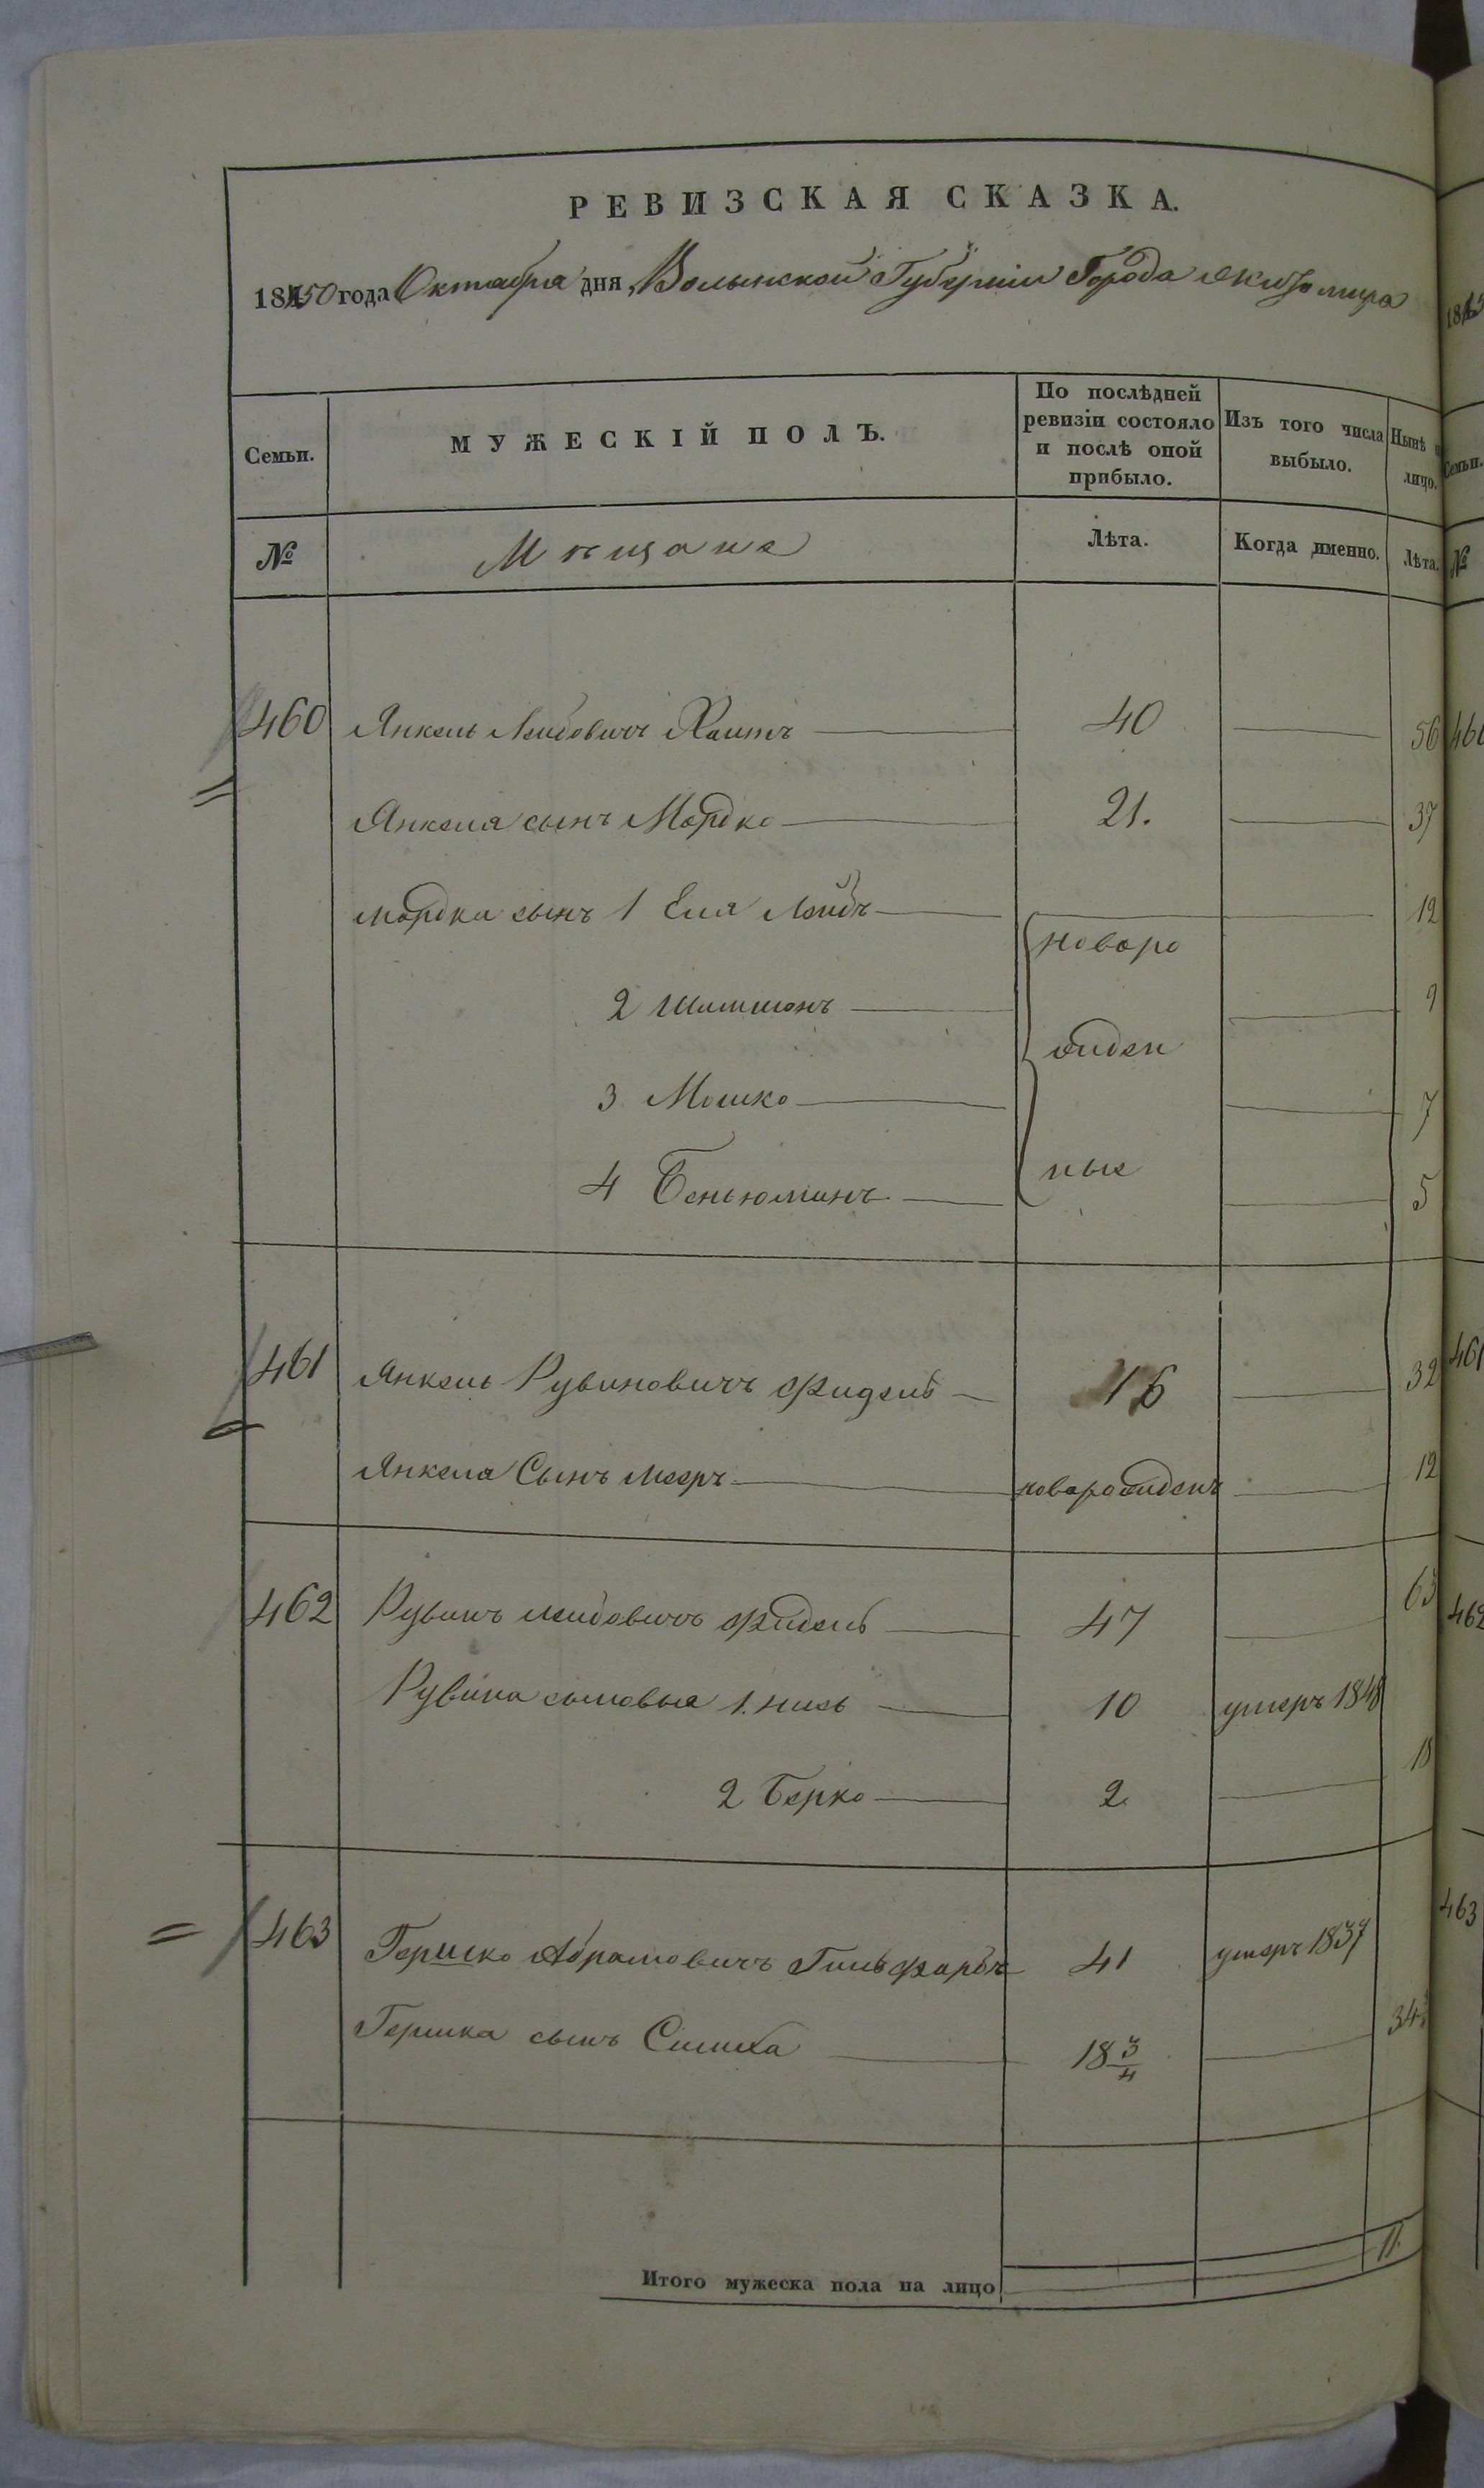 РЕВИЗСКАЯ СКАЗКА.
1850 года Октября дня, Волынской Губерніи Города Житомира
Семьи.
МУЖЕСКІЙ ПОЛЪ.
По послѣдней ревизіи состояло и послѣ оной прибыло.
Изъ того числа выбыло.
Нынѣ
лицо.
№
Мѣщане
Лѣта.
Когда именно.
Лѣта.
460 Янкель Лейбовичъ 40 56
Янкеля сынъ Мордко 21. 37
Мордка сынъ 1 Еля Лейбъ 12
новоро
2 Шимшонъ 9
жден
3 Мошко 7
ные
4 Беньюминъ 5
461 Янкель Рувиновичъ Фидель 16 32
Янкеля Сынъ Мееръ новорожденъ 12
462 Рувинъ Лейбовичъ Фидель 47 63
Рувина сыновья 1. 10 умеръ 1848
2 Берко 2 18
463 Гершко Абрамовичъ Гильфарбъ 41 умеръ 1837
Гершка сынъ Симха 18 3/4 34
Итого мужеска пола на лицо 11.
18
Семьи.
№
460
461
462
463